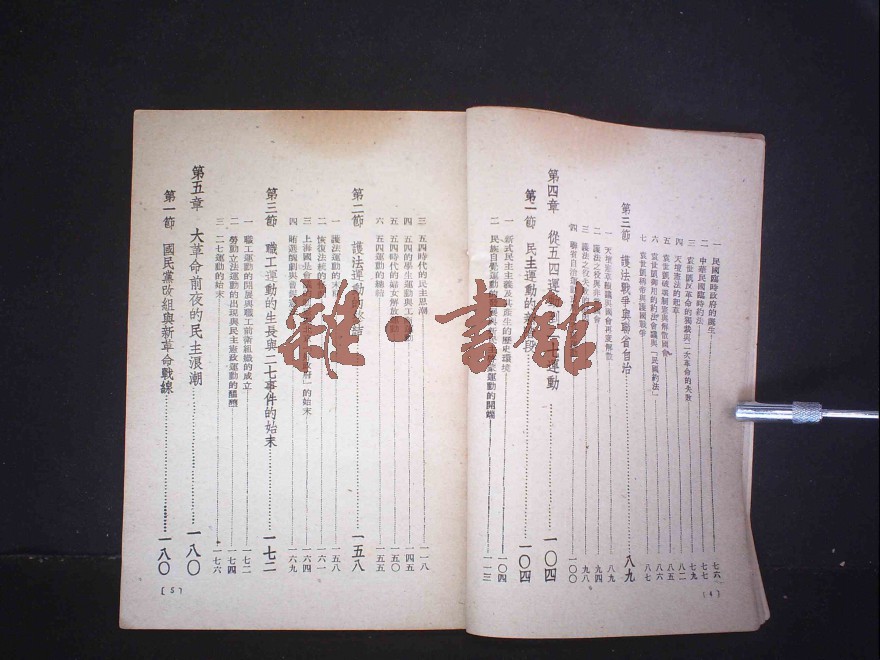 一 民國臨時政府的誕生 七六
二 中華民國臨時約法 七七
三 袁世凱反革命的獨裁與二次革命的失敗 七九
四 天壇憲法的起草 八二
五 袁世凱破壞制憲與解散國會 八五
六 袁世凱御用的約法會議與「民國約法」 八六
七 袁世凱稱帝與護國戰爭 八七
第三節 護法戰爭與聯省自治 八九
一 天壇憲草續議與國會再度解散 八九
二 護法之役與非 會 九四
三 護法之役失 九八
四 聯省自治 一〇〇
第四章 從五四運動 七運動 一〇四
第一節 民主運動的 段 一〇四
一 新式民主主義及其產生的歷史環境 一〇四
二 民族自覺運動的 展與新民主 運動的開端 一一三
[4]
三 五四時代的民主思潮 一一八
四 五四的學生運動與工 一四五
五 五四時代的婦女解放 一五〇
六 五四運動的總結 一五五
第二節 護法運動的 結 一五八
一 護法運動的末 一五八
二 恢復法統的 一六一
三 上海國是會 政府」的始末 一六四
四 賄選醜劇與曹 一六九
第三節 職工運動的生長與二七事件的始末 一七二
一 職工運動的開展與職工前衛組織的成立 一七二
二 勞動立法運動的出現與民主憲政運動的醞釀 一七四
三 二七運動的始末 一七六
第五章 大革命前夜的民主浪潮 一八〇
第一節 國民黨改組與新革命戰線 一八〇
[5]
雜·書館